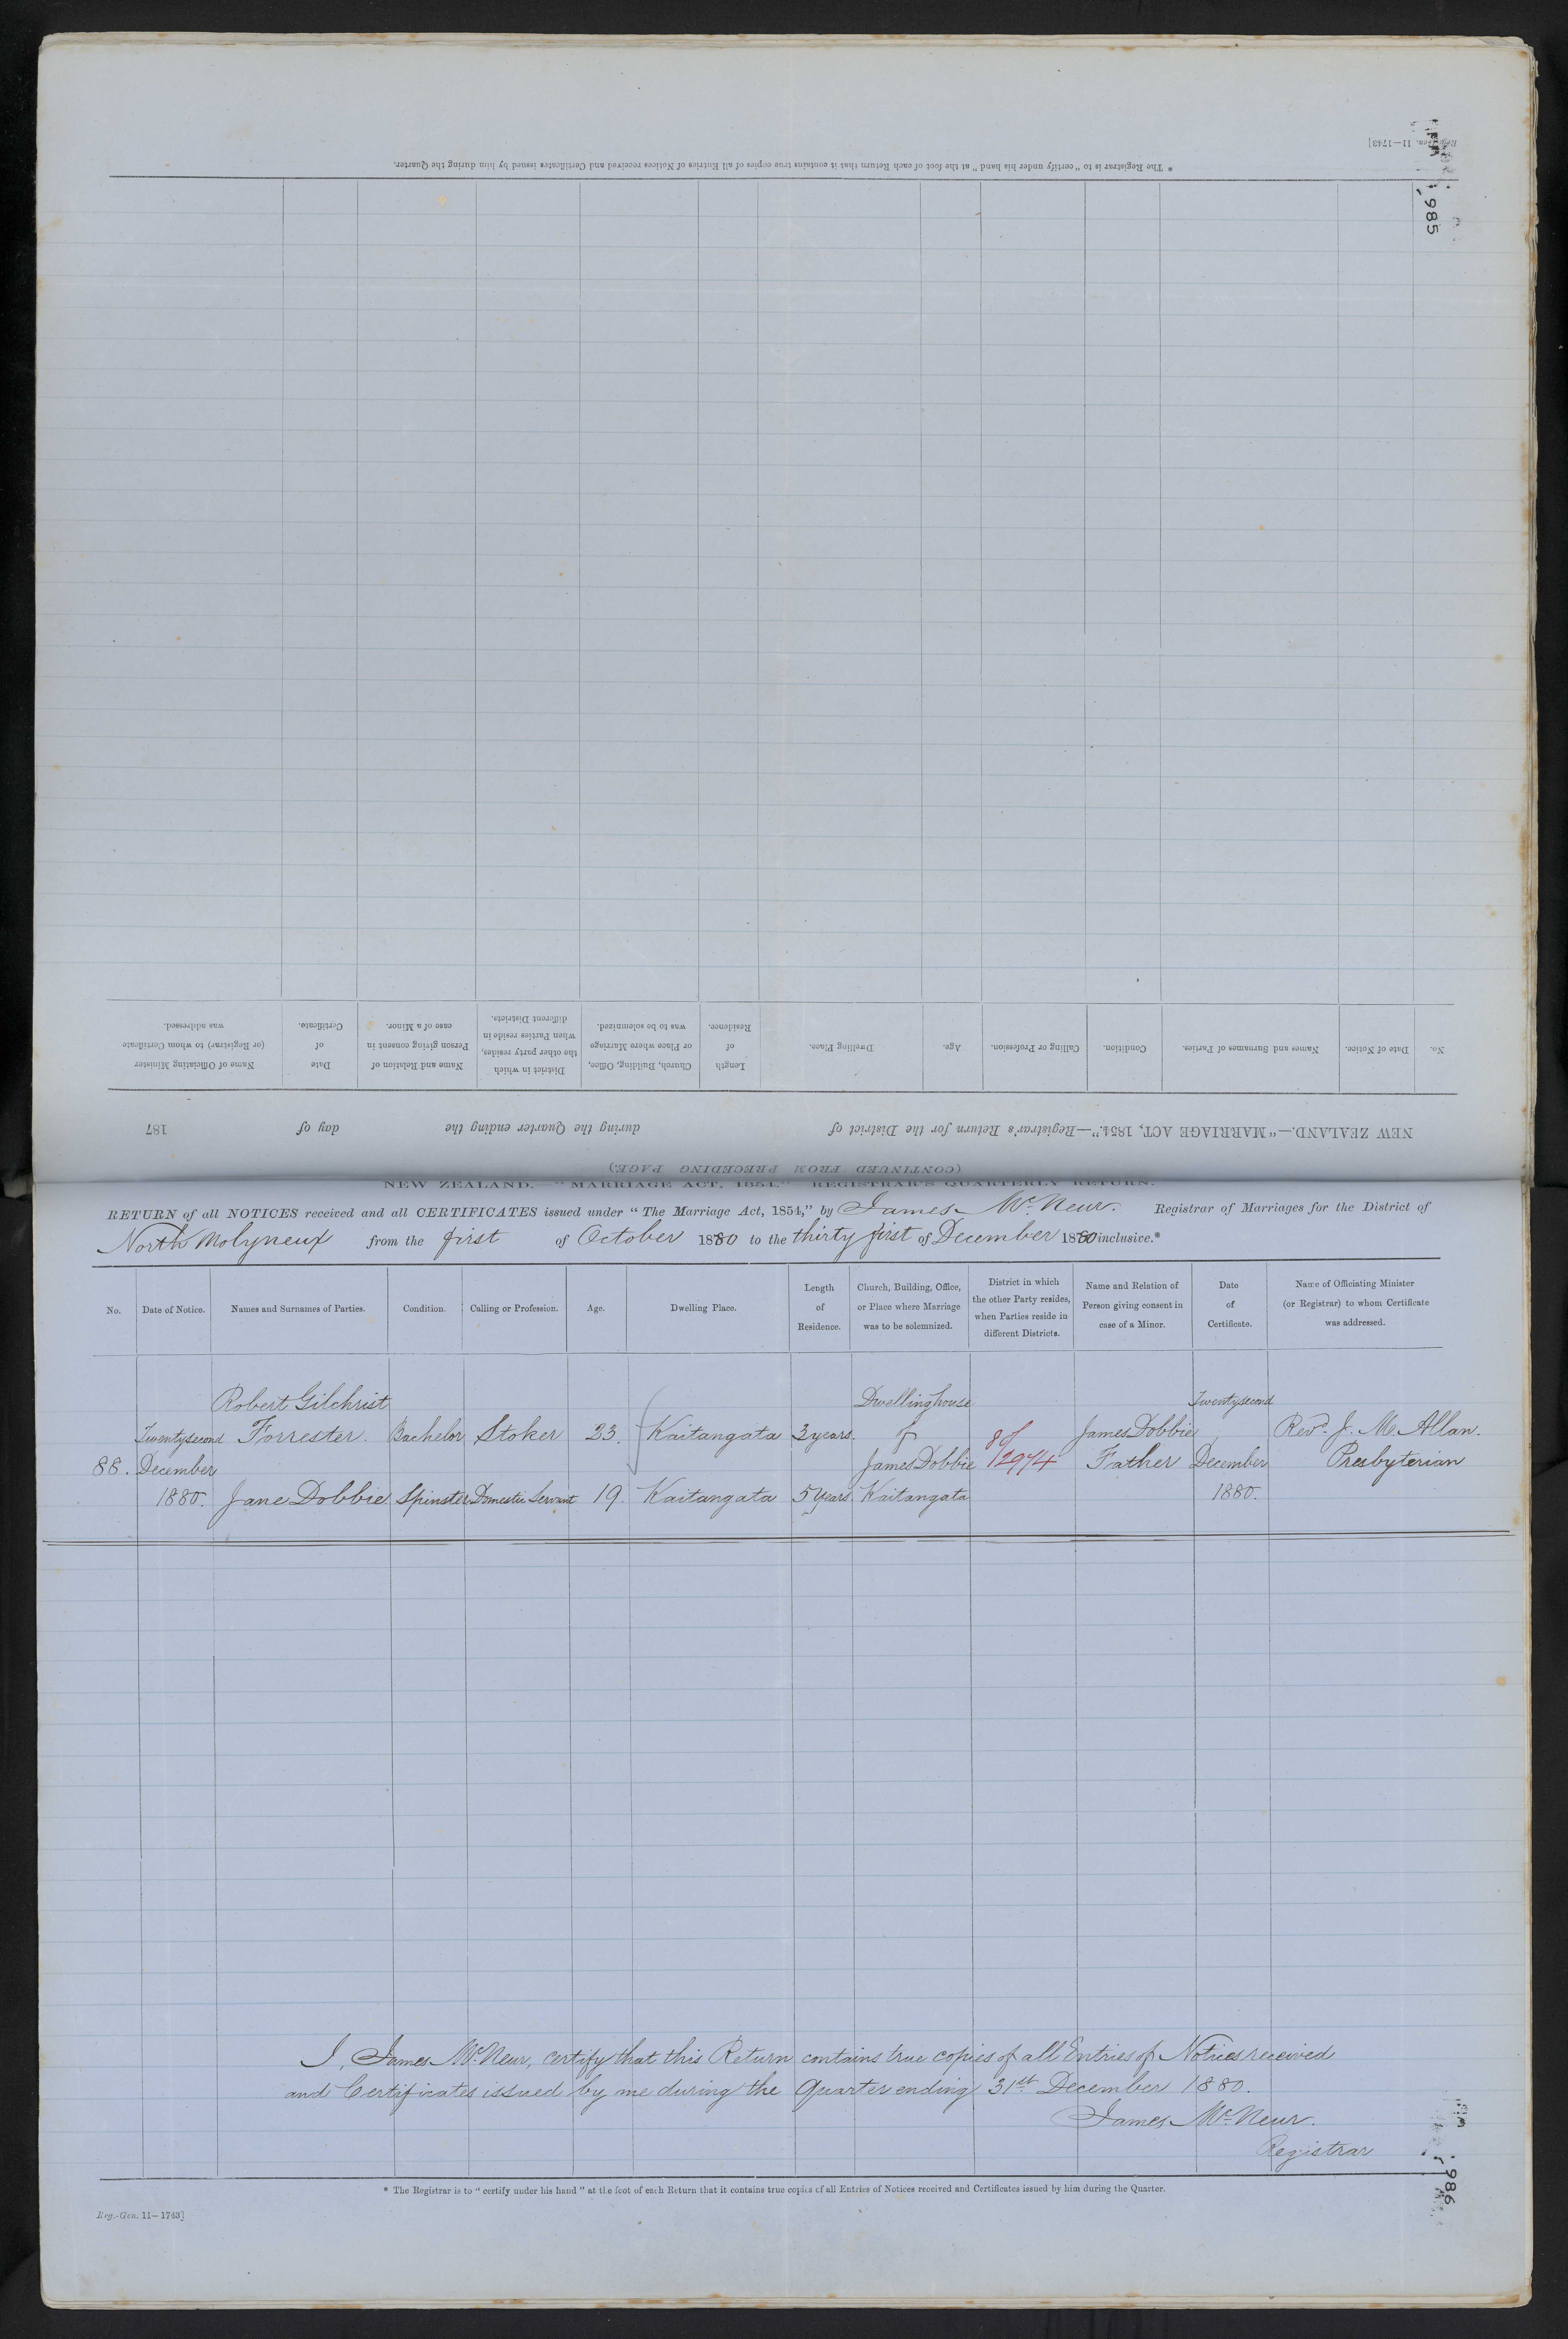 Reg.-Gen. 11—1743]
985
* The Registrar is to "certify under his hand" at the foot of each Return that it contains true copies of all Entries of Notices received and Certificates issued by him during the Quarter.
No.
Date of Notice.
Names and Surnames of Parties.
Condition.
Calling or Profession.
Age.
Dwelling Place.
Length
of
Residence.
Church, Building, Office,
or Place where Marriage
was to be solemnized.
District in which
the other party resides,
when Parties reside in
different Districts.
Name and Relation of
Person giving consent in
case of a Minor.
Date
of
Certificate.
Name of Officiating Minister
(or Registrar) to whom Certificate
was addressed.
NEW ZEALAND.—"MARRIAGE ACT, 1854."—Registrar's Return for the District of during the Quarter ending the day of 187
(CONTINUED FROM PRECEDING PAGE.)
NEW ZEALAND.—"MARRIAGE ACT, 1854." REGISTRAR'S QUARTERLY RETURN.
RETURN of all NOTICES received and all CERTIFICATES issued under "The Marriage Act, 1854," by James McNeur. Registrar of Marriages for the District of
North Molyneux from the first of October 1880 to the thirty first of December 1880 inclusive.*
No.
Date of Notice.
Names and Surnames of Parties.
Condition.
Calling or Profession.
Age.
Dwelling Place.
Length
of
Residence.
Church, Building, Office,
or Place where Marriage
was to be solemnized.
District in which
the other Party resides,
when Parties reside in
different Districts.
Name and Relation of
Person giving consent in
case of a Minor.
Date
of
Certificate.
Name of Officiating Minister
(or Registrar) to whom Certificate
was addressed.
Robert Gilchrist Dwelling house Twenty second
Twenty second Forrester. Bachelor Stoker 23. Kaitangata 3 years. of 80/ James Dobbie Revd. J. M. Allan.
88. December James Dobbie 2974 Father December Presbyterian
1880. Jane Dobbie Spinster Domestic Servant 19. Kaitangata 5 Years Kaitangata 1880.
I, James McNeur, certify that this Return contains true copies of all Entries of Notices received
and Certificates issued by me during the Quarter ending 31st December 1880.
James McNeur.
Registrar
* The Registrar is to "certify under his hand" at the foot of each Return that it contains true copies of all Entries of Notices received and Certificates issued by him during the Quarter.
Reg.-Gen. 11—1743]
986